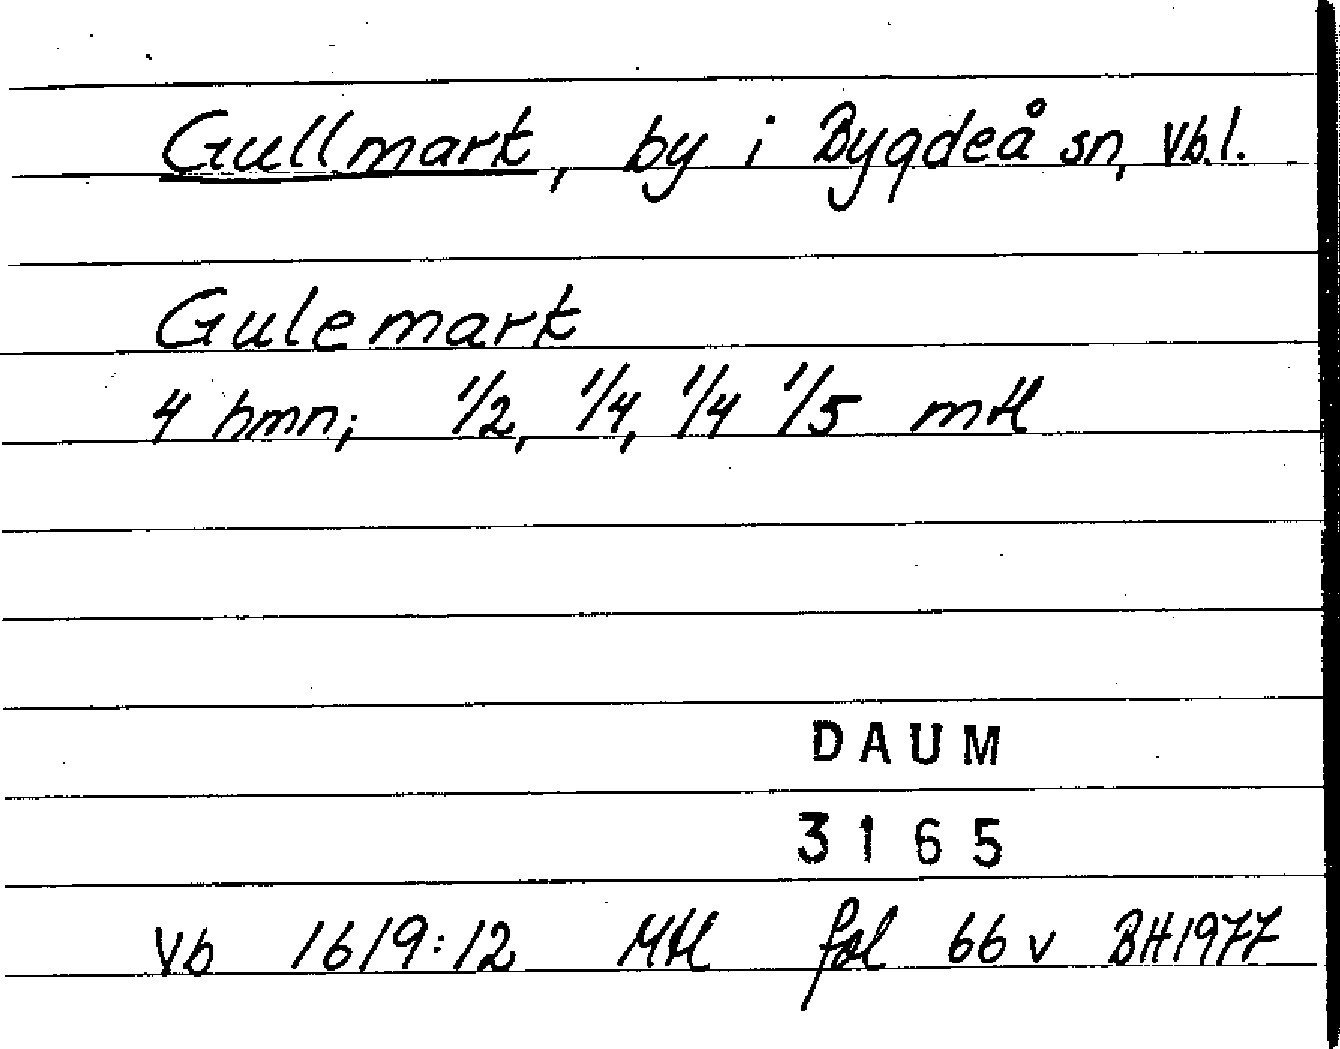 Gullmark, by i Bygdeå sn, Vb.l.
Gulemark
4 hmn; 1/2, 1/4, 1/4 1/5 mtl
DAUM
3165
Vb 1619:12 Mtl fol 66 v BH1977